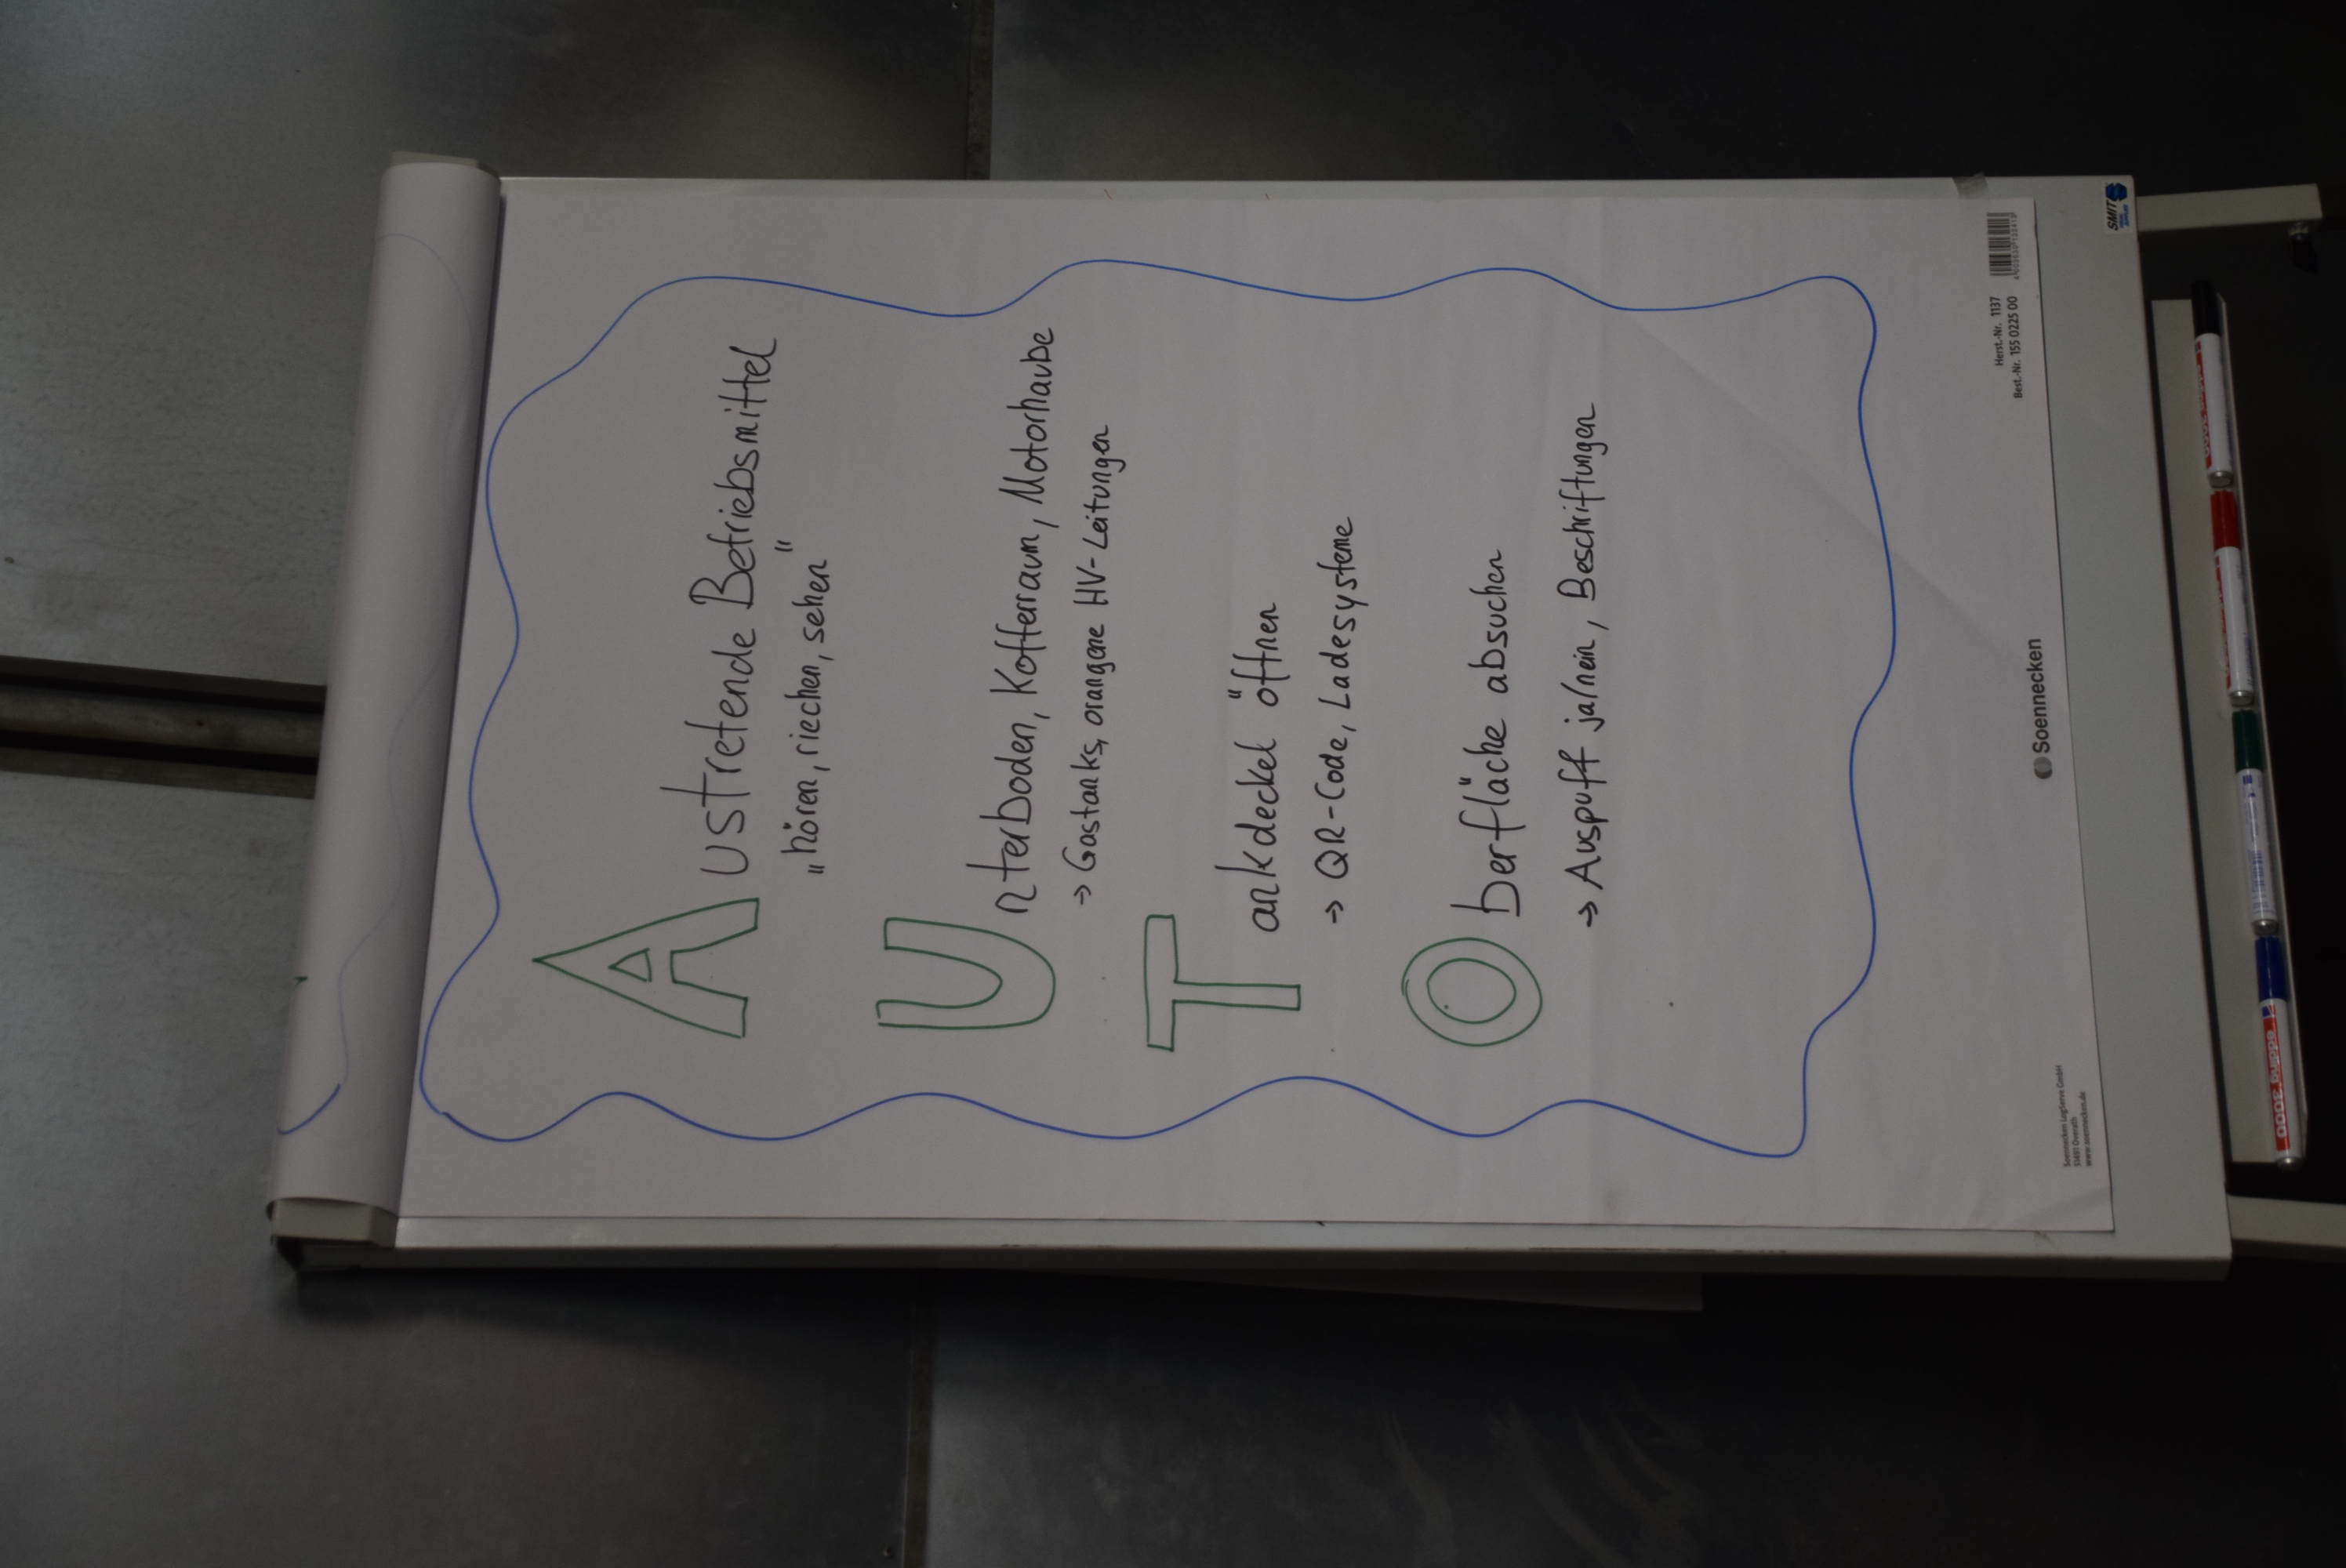 Austretende Betriebsmittel
„hören, riechen, sehen"
Unterboden, Kofferraum, Motorhaube
→ Gastanks, orangene HV-Leitungen
Tankdeckel öffnen
→ QR-Code, Ladesysteme
Oberfläche absuchen
→ Auspuff ja/nein, Beschriftungen
Soennecken
Herst.-Nr. 1137
Best.-Nr. 155 0225 00
Soennecken LogServe GmbH
51491 Overath
www.soennecken.de
SMIT
edding 3000